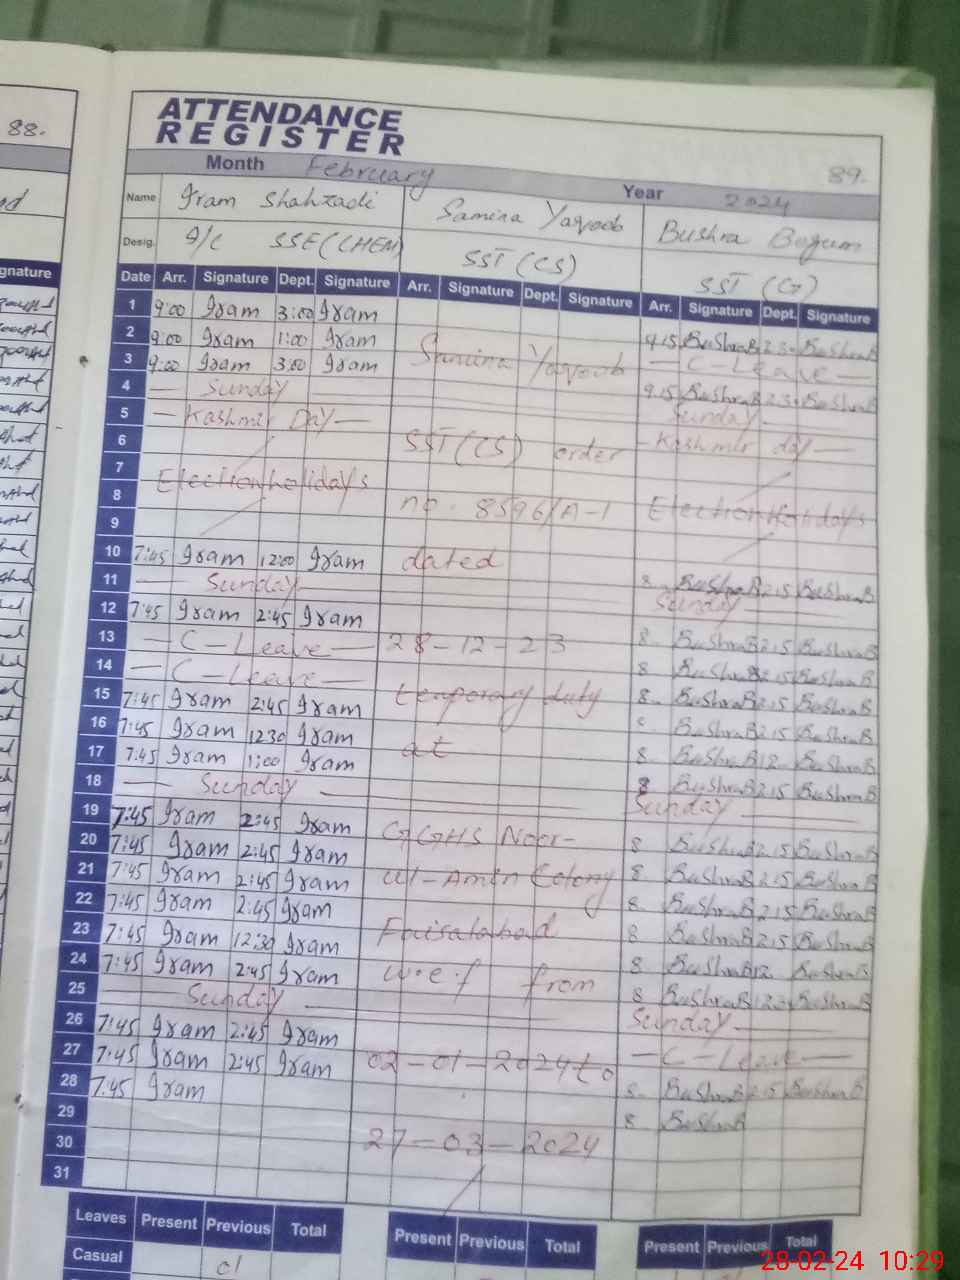 88.
ATTENDANCE
REGISTER
89.
Month February Year 2024
Name Iram Shahzadi Samina Yaqoob Bushra Begum
Desig. I/C SSE (CHEM) SST (CS) SST (G)
Date Arr. Signature Dept. Signature Arr. Signature Dept. Signature Arr. Signature Dept. Signature
1 9:00 Iram 3:00 Iram 9.15 BushraB 2.30 BushraB
2 9:00 Iram 1:00 Iram Samina Yaqoob — C-Leave —
3 9:00 Iram 3:00 Iram 9.15 BushraB 2.30 BushraB
4 — Sunday — Sunday —
5 — Kashmir Day — SST (CS) order Kashmir day —
6
7 Election holidays no. 8596/A-1 Election Holidays
8
9
10 7:45 Iram 12:00 Iram dated 8 BushraB 2.15 BushraB
11 — Sunday — Sunday —
12 7:45 Iram 2:45 Iram 8 BushraB 2.15 BushraB
13 — C-Leave — 28-12-23 8 BushraB 2.15 BushraB
14 — C-Leave — 8 BushraB 2.15 BushraB
15 7:45 Iram 2:45 Iram temporary duty 8 BushraB 2.15 BushraB
16 7:45 Iram 12:30 Iram 8 BushraB 12 BushraB
17 7:45 Iram 1:00 Iram at 8 BushraB 2.15 BushraB
18 — Sunday — Sunday —
19 7:45 Iram 2:45 Iram GGHS Noor- 8 BushraB 2.15 BushraB
20 7:45 Iram 2:45 Iram 8 BushraB 2.15 BushraB
21 7:45 Iram 2:45 Iram ul-Amin Colony 8 BushraB 2.15 BushraB
22 7:45 Iram 2:45 Iram 8 BushraB 2.15 BushraB
23 7:45 Iram 12:30 Iram Faisalabad 8 BushraB 12 BushraB
24 7:45 Iram 2:45 Iram w.e.f from 8 BushraB 12.30 BushraB
25 — Sunday — Sunday —
26 7:45 Iram 2:45 Iram — C-Leave —
27 7:45 Iram 2:45 Iram 02-01-2024 to 8 BushraB 2.15 BushraB
28 7:45 Iram 8 BushraB
29
30 27-03-2024
31
Leaves Present Previous Total Present Previous Total Present Previous Total
Casual 01
28-02-24 10:29